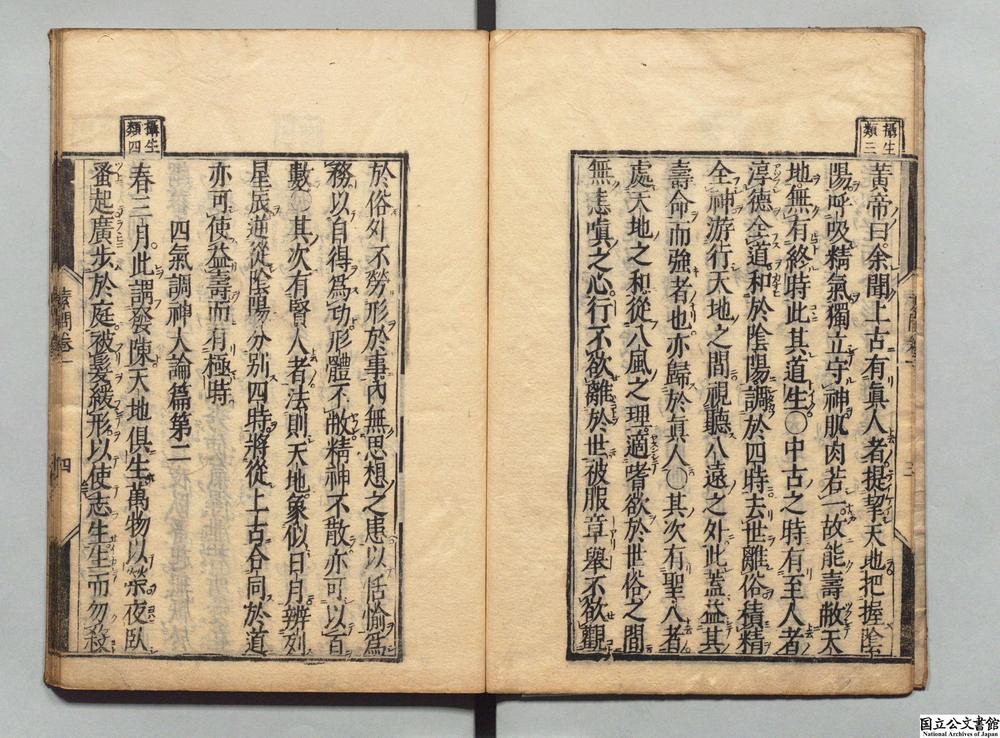 攝生
類三
黃帝曰余聞上古有眞人者提挈天地把握陰
陽呼吸精氣獨立守神肌肉若一故能壽敝天
地無有終時此其道生○中古之時有至人者
淳德全道和於陰陽調於四時去世離俗積精
全神游行天地之間視聽八遠之外此蓋益其
壽命而強者也亦歸於眞人○其次有聖人者
處天地之和從八風之理適嗜欲於世俗之間
無恚嗔之心行不欲離於世被服章舉不欲觀
三
攝生
類四
於俗外不勞形於事內無思想之患以恬愉爲
務以自得爲功形體不敝精神不散亦可以百
數○其次有賢人者法則天地象似日月辨列
星辰逆從陰陽分別四時將從上古合同於道
亦可使益壽而有極時
四氣調神大論篇第二
春三月此謂發陳天地俱生萬物以榮夜臥
蚤起廣步於庭被髮緩形以使志生生而勿殺
素問卷一
四
国立公文書館
National Archives of Japan